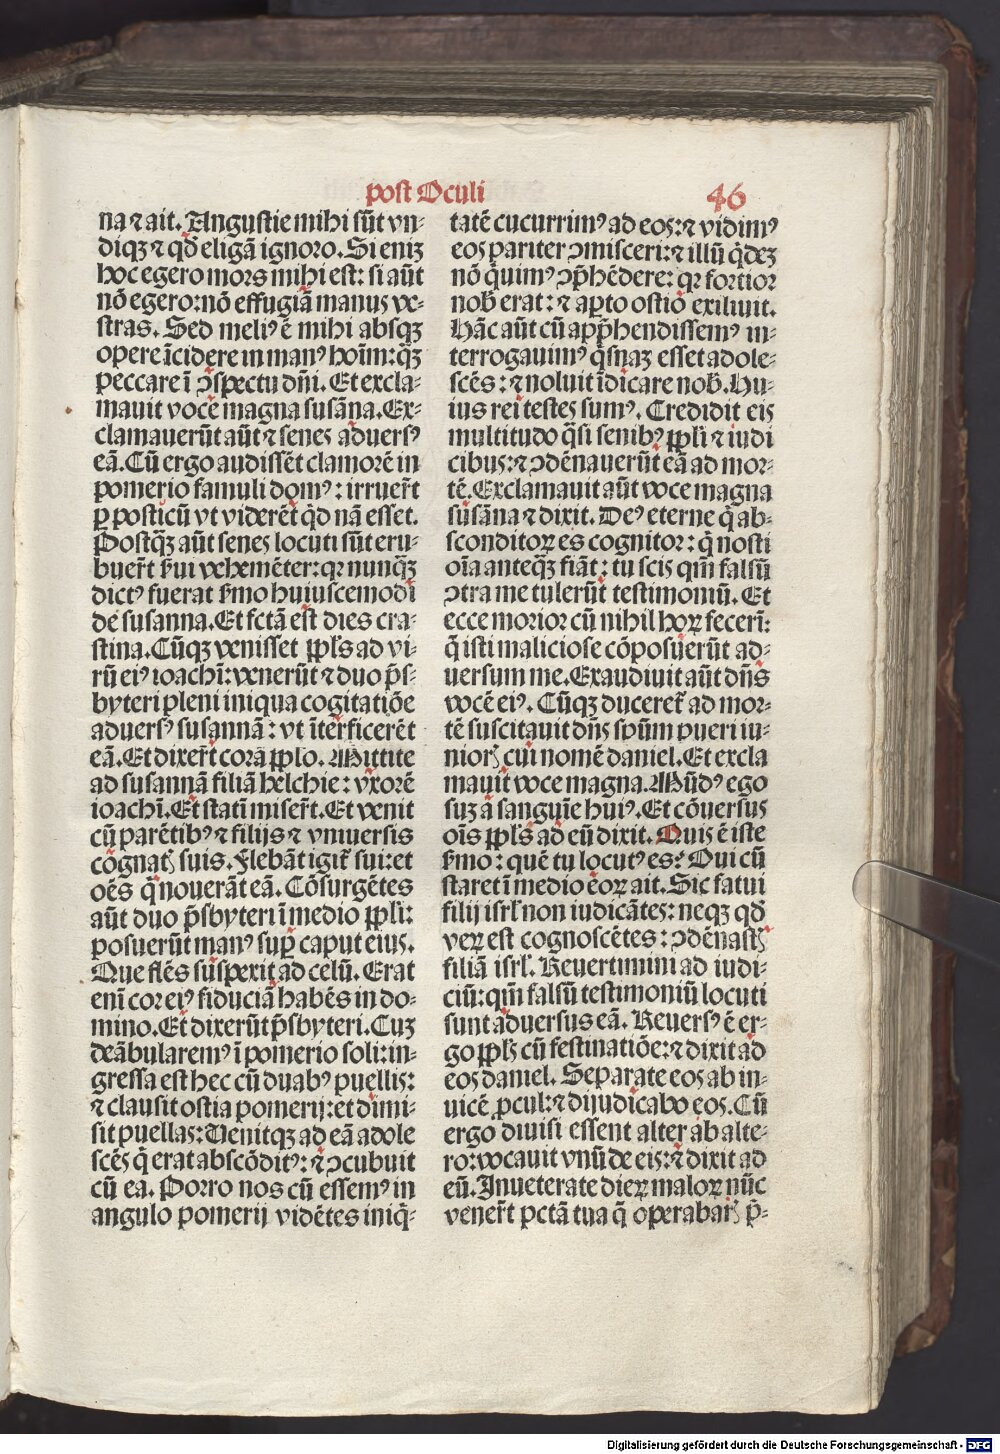 post Oculi
46
na ⁊ ait. Angustie mihi sũt vn-
diqȝ ⁊ qď eligã ignoro. Si eniȝ
hoc egero mors mihi est: si aũt
nõ egero: nõ effugiã manus ve-
stras. Sed meliꝰ ẽ mihi absqȝ
opere ĩcidere in manꝰ hoĩm: q̃ȝ
peccare ĩ ꝯspectu dñi. Et excla-
mauit voce magna susãna. Ex-
clamauerũt aũt ⁊ senes aduersꝰ
eã. Cũ ergo audissẽt clamorẽ in
pomerio famuli domꝰ: irruer̃t
ꝑ posticũ vt viderẽt q̇d nã esset.
Postq̃ȝ aũt senes locuti sũt eru-
buer̃t ẜui vehemẽter: qꝛ nunq̃ȝ
dictꝰ fuerat ẜmo huiuscemodi
de susanna. Et fctã est dies cra-
stina. Cũqȝ venisset ppl̃s ad vi-
rũ eiꝰ ioachĩ: venerũt ⁊ duo p̃s-
byteri pleni iniqua cogitatiõe
aduersꝰ susannã: vt ĩterficerẽt
eã. Et dixer̃t corã ppl̃o. Mittite
ad susannã filiã helchie: vxorẽ
ioachĩ. Et statĩ miser̃t. Et venit
cũ parẽtibꝰ ⁊ filijs ⁊ vniuersis
cõgnatꝭ suis. Flebãt igit᷑ sui: et
oẽs q̇ nouerãt eã. Cõsurgẽtes
aũt duo p̃sbyteri ĩ medio ppl̃i:
posuerũt manꝰ sup̃ caput eius.
Que flẽs suspexit ad celũ. Erat
enĩ cor eiꝰ fiduciã habẽs in do-
mino. Et dixerũt p̃sbyteri. Cuȝ
deãbularemꝰ ĩ pomerio soli: in-
gressa est hec cũ duabꝰ puellis:
⁊ clausit ostia pomerij: et dimi-
sit puellas: Uenitqȝ ad eã adole
scẽs q̇ erat abscõditꝰ: ⁊ ꝯcubuit
cũ ea. Porro nos cũ essemꝰ in
angulo pomerij vidẽtes iniq̇-
tatẽ cucurrimꝰ ad eos: ⁊ vidimꝰ
eos pariter ꝯmisceri: ⁊ illũ q̇deȝ
nõ q̇uimꝰ ꝯp̃hẽdere: qꝛ fortior
nob̃ erat: ⁊ aꝑto ostio exiliuit.
Hãc aũt cũ app̃hendissemꝰ in-
terrogauimꝰ q̇snaȝ esset adole-
scẽs: ⁊ noluit ĩdicare nob̃. Hu-
ius rei testes sumꝰ. Credidit eis
multitudo q̃si senibꝰ ppl̃i ⁊ iudi
cibus: ⁊ ꝯdẽnauerũt eã ad mor-
tẽ. Exclamauit aũt voce magna
susãna ⁊ dixit. Deꝰ eterne q̇ ab-
sconditoꝝ es cognitor: q̇ nosti
oĩa anteq̃ȝ fiãt: tu scis qm̃ falsũ
ꝯtra me tulerũt testimoniũ. Et
ecce morior cũ nihil hoꝝ fecerĩ:
q̃ isti maliciose cõposuerũt ad-
uersum me. Exaudiuit aũt dñs
vocẽ eiꝰ. Cũqȝ duceret᷑ ad mor-
tẽ suscitauit dñs spũm pueri iu-
niorꝭ cui nomẽ daniel. Et excla
mauit voce magna. Mũdꝰ ego
suȝ a sanguĩe huiꝰ. Et cõuersus
oĩs ppl̃s ad eũ dixit. Quis ẽ iste
ẜmo: quẽ tu locutꝰ es? Qui cũ
staret ĩ medio eoꝝ ait. Sic fatui
filij isrl̃ non iudicãtes: neqȝ qď
veꝝ est cognoscẽtes: ꝯdẽnastꝭ
filiã isrl̃. Reuertimini ad iudi-
ciũ: qm̃ falsũ testimoniũ locuti
sunt aduersus eã. Reuersꝰ ẽ er-
go ppl̃s cũ festinatiõe: ⁊ dixit ad
eos daniel. Separate eos ab in-
uicẽ ꝓcul: ⁊ dijudicabo eos. Cũ
ergo diuisi essent alter ab alte-
ro: vocauit vnũ de eis: ⁊ dixit ad
eũ. Inueterate dieꝝ maloꝝ nũc
vener̃t pctã tua q̃ operabarꝭ p̃-
Digitalisierung gefördert durch die Deutsche Forschungsgemeinschaft - DFG